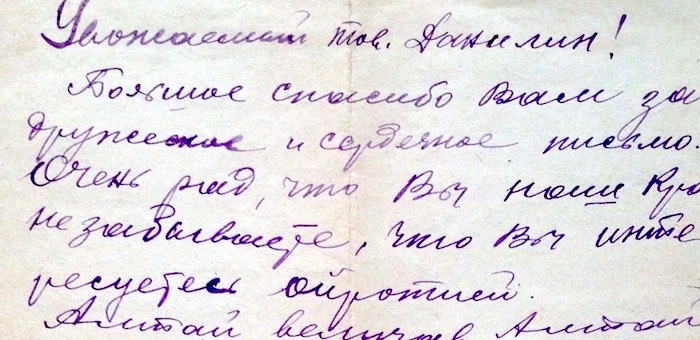 Уважаемый тов. Данилин!
Большое спасибо Вам за
дружеское и сердечное письмо.
Очень рад, что Вы наш кра
не забываете, что Вы инте
ресуетесь Ойротией.
Алтай величав Алтай